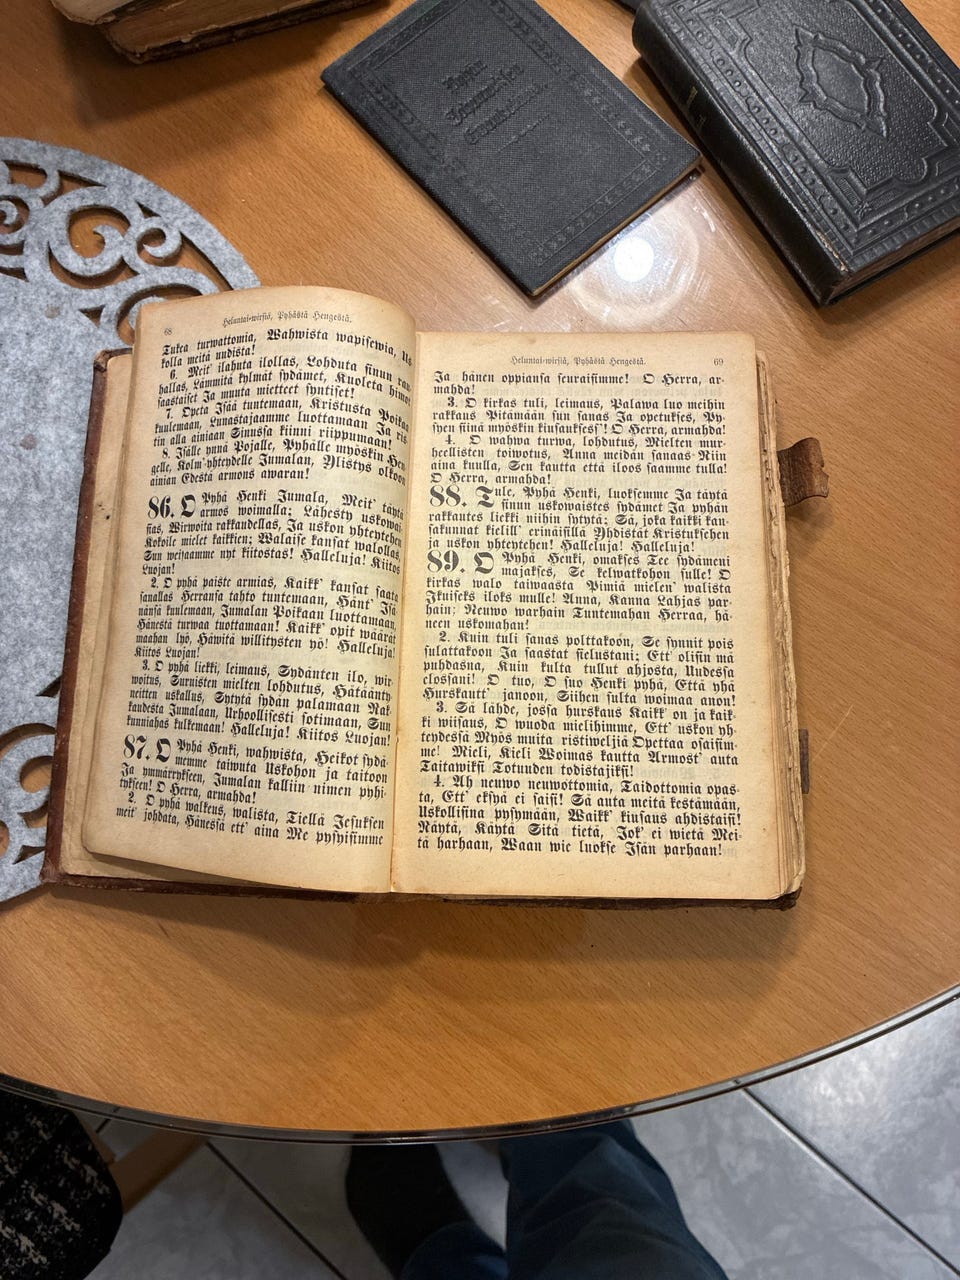 68
Heluntai-wirsiä, Pyhästä Hengestä.
Tukea turwattomia, Wahwista wapisewia,
kolla meitä uudista!
6. Meit' ilahuta ilollas, Lohduta sinun
hallas, Lämmitä kylmät sydämet, Kuoleta himot
saastaiset Ja muuta mietteet syntiset!
7. Opeta Isää tuntemaan, Kristusta Poikaa
kuulemaan, Lunastajaamme luottamaan Ja ris-
tin alla ainiaan Sinussa kiinni riippumaan!
8. Isälle ynnä Pojalle, Pyhälle myöskin Hen-
gelle, Kolm'-yhteydelle Jumalan, Ylistys olkoon
ainian Edestä armons awaran!
86. O Pyhä Henki Jumala, Meit' täytä
armos woimalla; Lähesty uskowai-
sias, Wirwoita rakkaudellas, Ja uskon yhteytehen
Kokoile mielet kaikkien; Walaise kansat walollas,
Sun weisaamme nyt kiitostas! Halleluja! Kiitos
Luojan!
2. O pyhä paiste armias, Kaikk' kansat saata
sanallas Herransa tahto tuntemaan, Hänt' Isä-
nänsä kuulemaan, Jumalan Poikaan luottamaan,
Hänestä turwaa tuottamaan! Kaikk' opit wäärät
maahan lyö, Häwitä willitysten yö! Halleluja!
Kiitos Luojan!
3. O pyhä liekki, leimaus, Sydänten ilo, wir-
woitus, Suruisten mielten lohdutus, Hätääänty-
neitten uskallus, Sytytä sydän palamaan Rak-
kaudesta Jumalaan, Urhoollisesti sotimaan, Sun
kunniahas kulkemaan! Halleluja! Kiitos Luojan!
87. O Pyhä Henki, wahwista, Heikot sydä-
memme taiwuta Uskohon ja taitoon
Ja ymmärrykseen, Jumalan kalliin nimen pyhi-
tykseen! O Herra, armahda!
2. O pyhä walkeus, walista, Tiellä Jesuksen
meit' johdata, Hänessä ett' aina Me pysyisimme
Heluntai-wirsiä, Pyhästä Hengestä.
69
Ja hänen oppiansa seuraisimme! O Herra, ar-
mahda!
3. O kirkas tuli, leimaus, Palawa luo meihin
rakkaus Pitämään sun sanas Ja opetukses, Py-
syen siinä myöskin kiusauksess'! O Herra, armahda!
4. O wahwa turwa, lohdutus, Mielten mur-
heellisten toiwotus, Anna meidän sanaas Niin
aina kuulla, Sen kautta että iloos saamme tulla!
O Herra, armahda!
88. Tule, Pyhä Henki, luoksemme Ja täytä
sinun uskowaistes sydämet Ja pyhän
rakkautes liekki niihin sytytä; Sä, joka kaikki kan-
sakunnat kielill' erinäisillä Yhdistät Kristuksehen
ja uskon yhteytehen! Halleluja! Halleluja!
89. O Pyhä Henki, omakses Tee sydämeni
majakses, Se kelwatkohon sulle! O
kirkas walo taiwaasta Pimiä mielen' walista
Ikuiseks iloks mulle! Auna, Kanna Lahjas par-
hain: Neuwo warhain Tuntemahan Herraa, hä-
neen uskomahan!
2. Kuin tuli sanas polttakoon, Se synnit pois
sulattakoon Ja saastat sielustani; Ett' olisin mä
puhdasna, Kuin kulta tullut ahjosta, Uudessa
elossani! O tuo, O suo Henki pyhä, Että yhä
Hurskautt' janoon, Siihen sulta woimaa anon!
3. Sä lähde, jossa hurskaus Kaikk' on ja kaik-
ki wiisaus, O wuoda mielihimme, Ett' uskon yh-
teydessä Myös muita ristiweljiä Opettaa osaisim-
me! Mieli, Kieli Woimas kautta Armost' auta
Taitawiksi Totuuden todistajiksi!
4. Ah neuwo neuwottomia, Taidottomia opas-
ta, Ett' eksyä ei saisi! Sä auta meitä kestämään,
Uskollisina pysymään, Waikk' kiusaus ahdistaisi!
Näytä, Käytä Sitä tietä, Jok' ei wietä Mei-
tä harhaan, Waan wie luokse Isän parhaan!